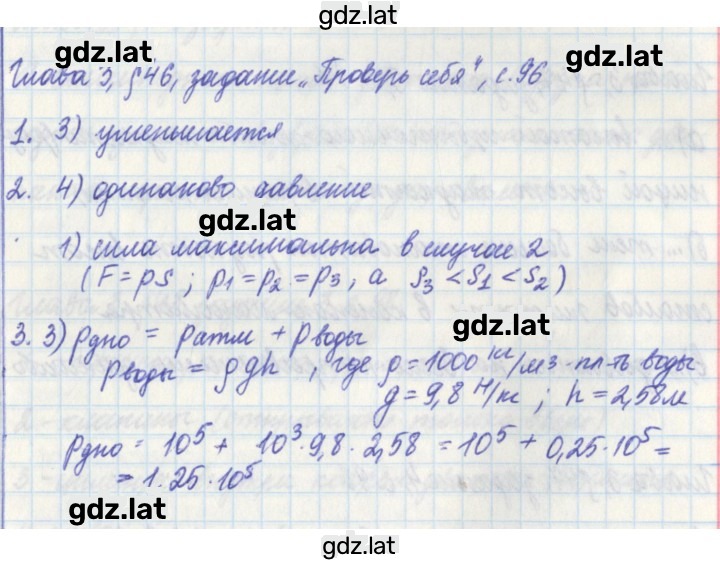 gdz.lat
gdz.lat
gdz.lat
Глава 3, § 46, задание „Проверь себя", с. 96
1. 3) уменьшается
2. 4) одинаково давление
gdz.lat
1) сила максимальна в случае 2
(F = pS ; p₁ = p₂ = p₃ , а S₃ < S₁ < S₂)
gdz.lat
3. 3) Pдно = Pатм + Pводы
Pводы = ρgh , где ρ = 1000 кг/м³ - пл-ть воды
g = 9,8 Н/кг ; h = 2,58 м
Pдно = 10⁵ + 10³ · 9,8 · 2,58 = 10⁵ + 0,25 · 10⁵ =
= 1.25 · 10⁵
gdz.lat
gdz.lat